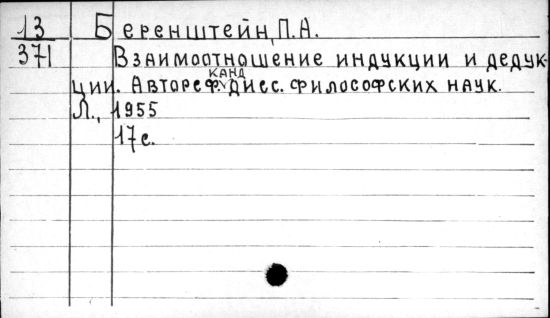 13 Беренштейн, П.А.
371 Взаимоотношение индукции и дедук-
ции. Автореф. канд дисс. философских наук.
Л., 1955
17с.